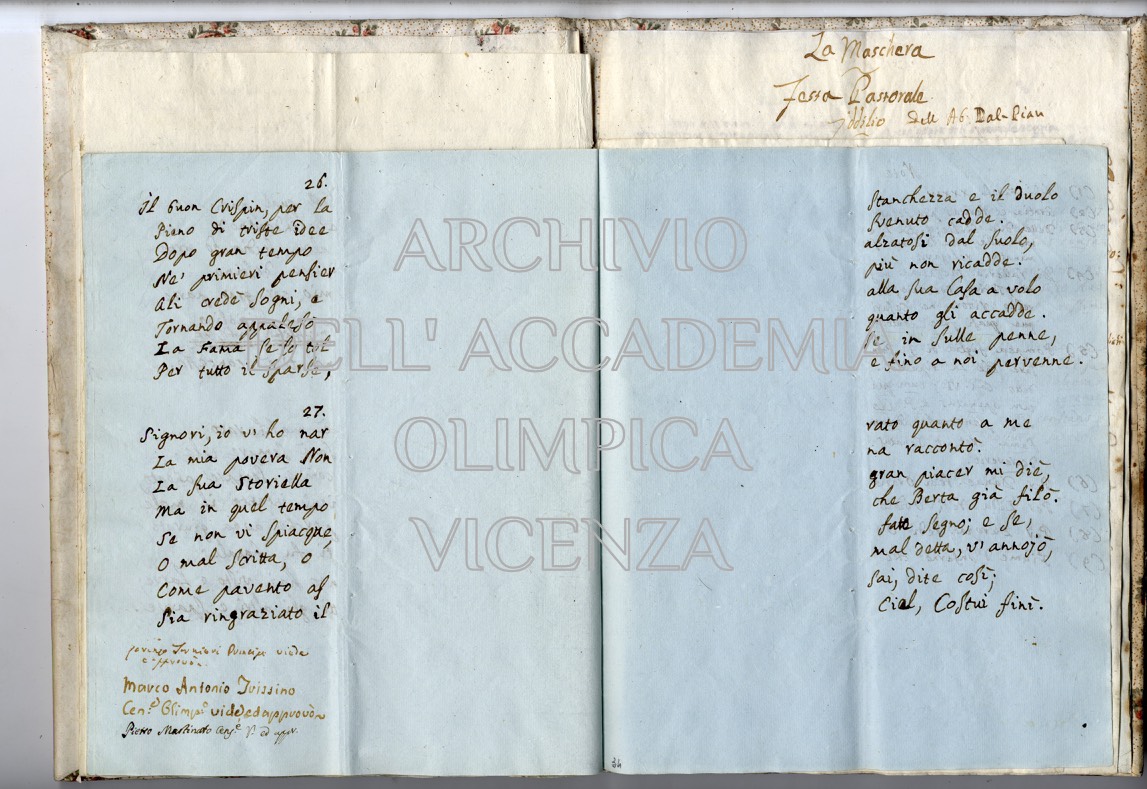 La Maschera
Festa Pastorale
Iddilio dell' Ab. Dal-Pian
26.
Il buon Crispin, per la
Pieno di triste idee
Dopo gran tempo
Ne' primieri pensier
Ali credè sogni, e
Tornando appalesò
La Fama se lo tol
Per tutto il sparse,
27.
Signori, io vi ho nar
La mia povera Non
La sua Storiella
Ma in quel tempo
Se non vi spiacque,
O mal scritta, o
Come pavento as
Sia ringraziato il
Principe vide
e approvò.
Marco Antonio Trissino
Cen.e Olimp.o vide, ed approvò
Pietro Martinato Cens.e V. ed appr.
stanchezza e il duolo
svenuto cadde.
alzatosi dal suolo,
più non ricadde.
alla sua Casa a volo
quanto gli accadde.
se in sulle penne,
e fino a noi pervenne.
rato quanto a me
na raccontò.
gran piacer mi diè,
che Berta già filò.
fate segno; e se,
mal detta, v'annojò,
sai, dite così;
Ciel, Costui finì.
34
ARCHIVIO
DELL' ACCADEMIA
OLIMPICA
VICENZA